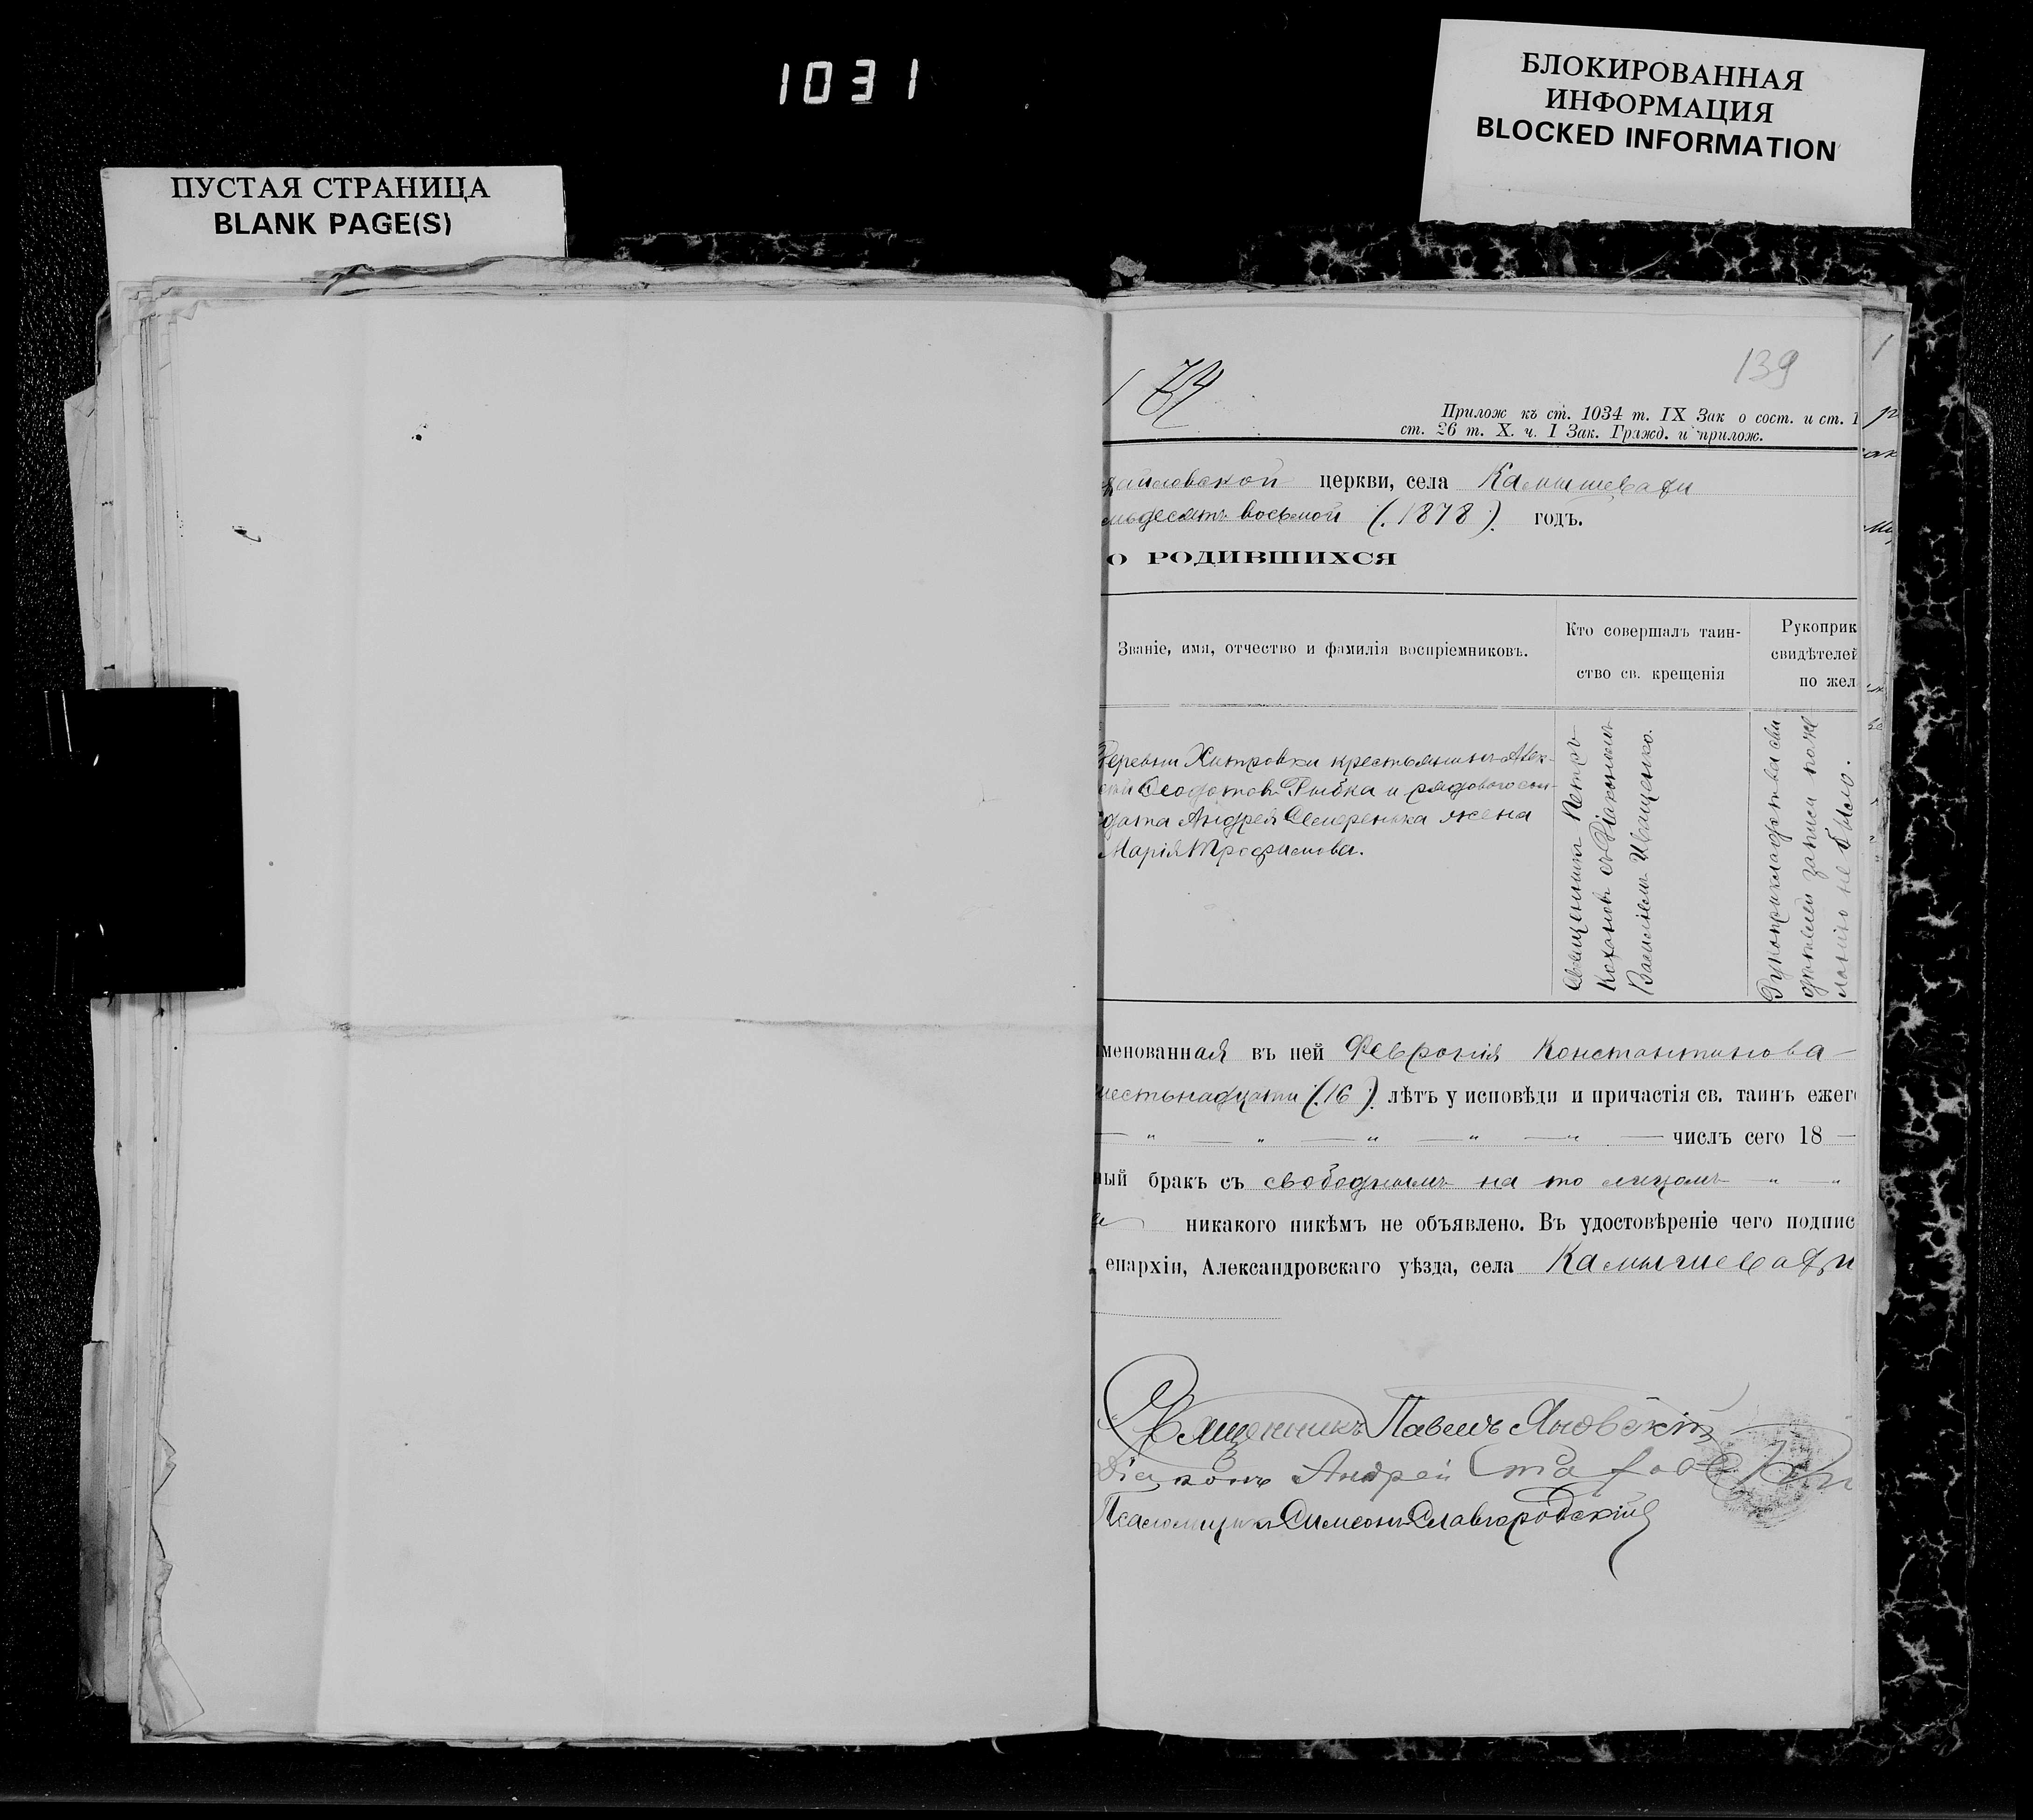 1031
БЛОКИРОВАННАЯ
ИНФОРМАЦИЯ
BLOCKED INFORMATION
ПУСТАЯ СТРАНИЦА
BLANK PAGE(S)
139
174
Прилож къ ст. 1034 т. IX Зак о сост. и ст. 1
ст. 26 т. X. ч. I Зак. Гражд. и прилож.
хайловской церкви, села Камышевахи
мьдесятъ восьмой (1878) годъ.
О РОДИВШИХСЯ
Званіе, имя, отчество и фамилія воспріемниковъ.
Кто совершалъ таин-
ство св. крещенія
Рукоприк
свидѣтелей
по жел
Деревни Хитровки крестьянинъ Алек-
сѣй Ѳеодотовъ Рыбка и рядового сол-
дата Андрея Семеренька жена
Марія Трофимова.
Священникъ Петръ
Кохановъ съ Діакономъ
Василіемъ Иващенко.
Рукоприкладства сви
дѣтелей записи по же
ланію не было.
менованная въ ней Февронія Константинова
шестьнадцати (16) лѣтъ у исповѣди и причастія св. таинъ ежег
— " — " — " — " — " — числъ сего 18 —
ный бракъ съ свободнымъ на то лицомъ — " — "
никакого никѣмъ не объявлено. Въ удостовѣреніе чего подпис
епархіи, Александровскаго уѣзда, села Камышевахи
Священникъ Павелъ Яновскій
Діаконъ Андрей
Псаломщикъ Симеонъ Славгородскій